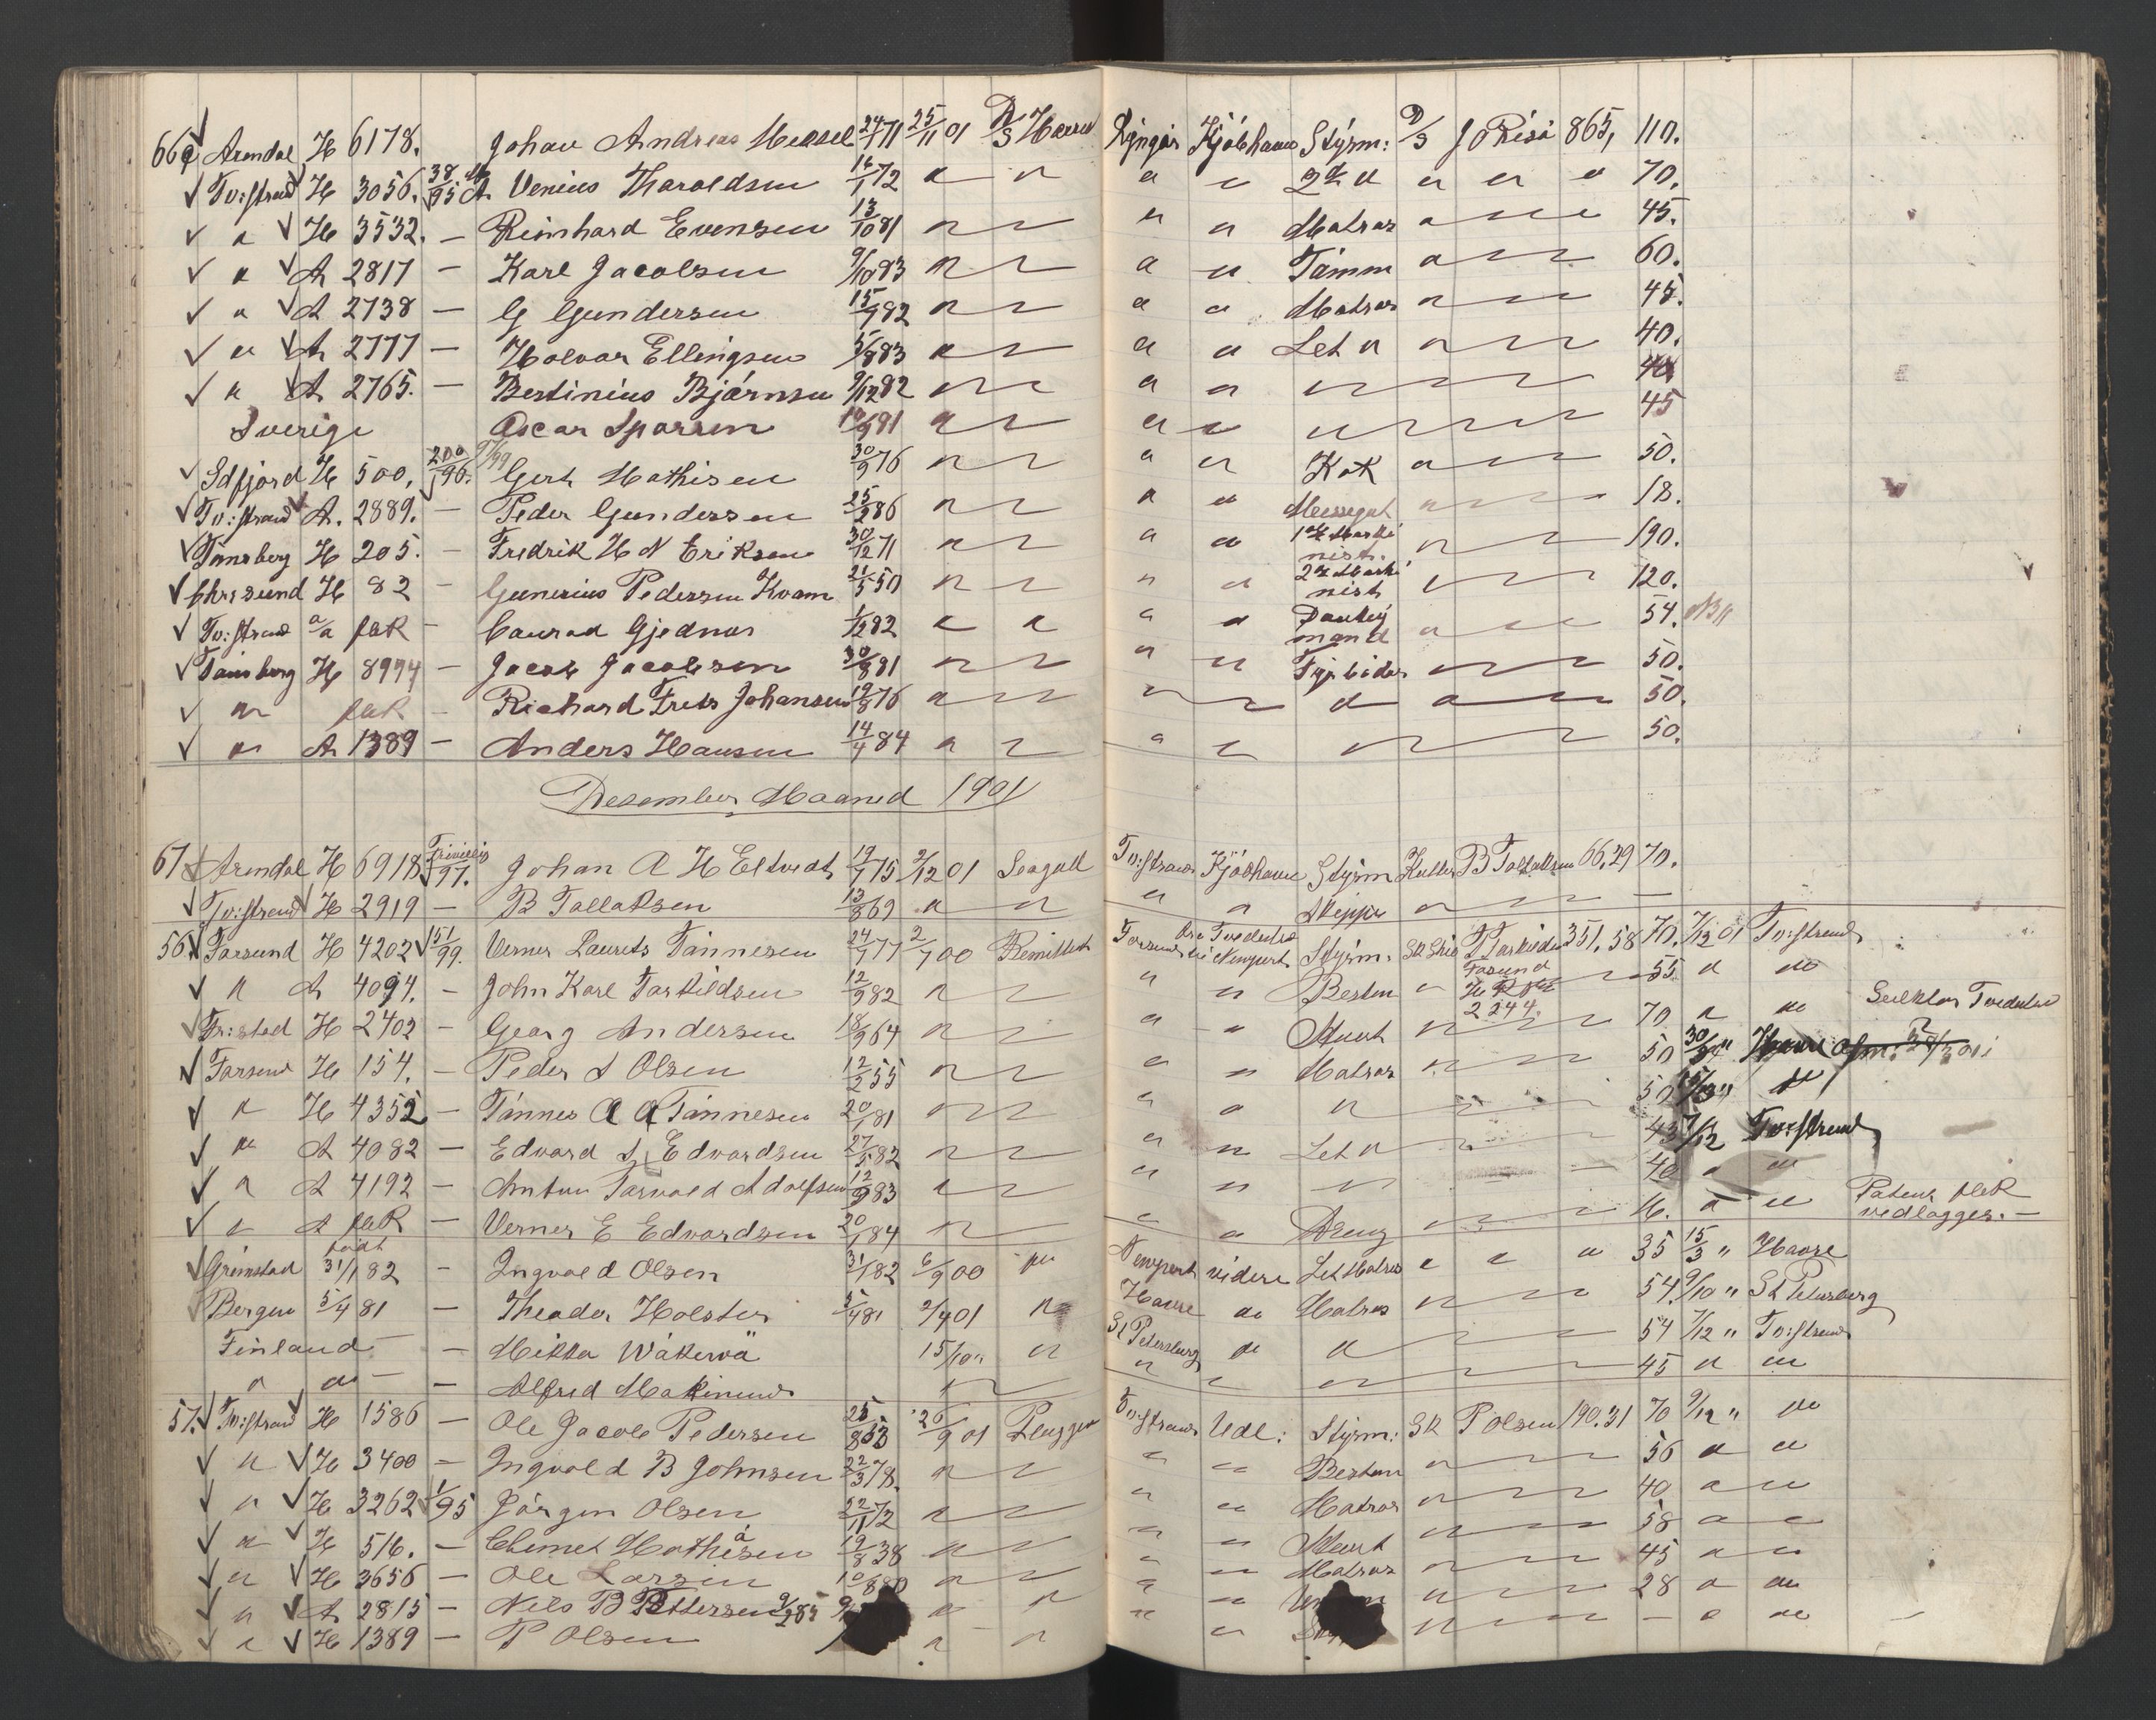 66 Arendal H 6178. Johan Andreas 24/7 71 25/11 01 D/S Lyngör Kjöbhavn Styrm: D/S J O Risö 865, 110.
Tv:strand H 3056. 38/95 Venius Haroldsen 16/1 72 " " " " 2den " " " " 70.
" H 3532. — Reinhard Evensen 13/10 81 " " " " Matros " 45.
" A 2817 — Karl Jacobsen 9/10 83 " " " " Tömm " 60.
" A 2738 — G Gundersen 15/9 82 " " " " Matros " 45.
" A 2777 — Halvor Ellingsen 5/8 83 " " " " Let " " 40.
" A 2765. — Bertinius Björnsen 9/12 82 " " " " " 40
Sverige Oscar Sparren 81 " " " " " 45
H 500. 200/96. Gert Mathisen 30/9 76 " " " " Kok " 50.
Tv:strand A. 2889. — Peder Gundersen 25/2 86 " " " " Messegut " 18.
Tönsberg H 205. — Fredrik H N Eriksen 30/12 71 " " " " 1ste Maskinist. " 190.
Chrssund H 82 — Gunerius Pedersen Kvam 21/5 50 " " " " 2den Maskinist " 120.
Tv:strand a/a pak — Conrad Gjednes 1/12 82 " " " " Donkeymand " 54.
Tönsberg H 8994 — Jacob Jacobsen 30/8 81 " " " " Fyrböder " 50.
" pak — Richard Frits Johansen 19/8 76 " " " " " 50.
" A 1389 — Anders Hansen 14/4 84 " " " " " 50.
Desember Maaned 1901
67 Arendal H 6918 Frivillig 97. Johan A H Eltvedt 19/7 75 2/12 01 Seagull Tv:strand Kjöbhavn Styrm Kutter B Tallaksen 66,29 70.
Tv:strand H 2919 — B Tallaksen 13/8 69 " " " " Skipper " —
56 Farsund H 4202 151/99. Verner Laurits Tönnesen 24/7 77 2/7 00 Remittent Farsund fra Tvedestr Newport Styrm. Sk Skib T Tarkilds 351,58 70. 7/12 01 Tv:strand
" A 4094. — John Karl Tarkildsen 12/9 82 " " " " Bestm " Farsund 2244. 55. " "
Fr:stad H 2402 — Georg Andersen 18/9 64 " " " " Stuert " 70 " " Tvedestr
Farsund H 154. — Peder S Olsen 12/2 55 " " " " Matros " 50 30/ " Havre
" H 4352 — Tönnes A A Tönnesen 20/1 81 " " " " " 50 "
" A 4082 — Edvard S Edvardsen 27/5 82 " " " " Let " " 43 7/12 Tv:strand
" A 4192 — Anton Tarvald Adolfsen 12/9 83 " " " " " 40 " "
" A pak — Verner E Edvardsen 20/1 84 " " " " Dreng " 16. " " Patent pak vedlægges. —
Grimstad födt 31/1 82 — Ingvald Olsen 31/1 82 6/9 00 " Newport videre Let Matros " " " 35 15/3 " Havre
Bergen 5/4 81 — Theodor Holster 5/4 81 2/4 01 " Havre do Matros " 54. 9/10 " St Petersberg
Finland — — Mikka Wäkewä 15/10 " " St Petersburg do " 54 7/12 " Tv:strand
" do — — Alfred Makinen " " " " 45 " "
57. Tv:strand H 1586 — Ole Jacob Pedersen 25/8 53 26/9 01 Pluggen Tv:strand Udl: Styrm: Sk P Olsen 190.31 70 9/12 " do
" H 3400 — Ingvald B Johnsen 22/3 78. " " " " Bestm " 56 " "
" H 3262 1/95 Jörgen Olsen 22/11 72 " " " " Matros " 40 " "
" H 516. — Clemet Mathisen 19/8 38 " " " " Stuert " 58 " "
" H 3656 — Ole Larsen 10/8 80 " " " " Matros " 45 " "
" A 2815 — Nils B Pettersen 9/2 85 " " " " 28 " do
" H 1389 — P Olsen " " " " " — " do